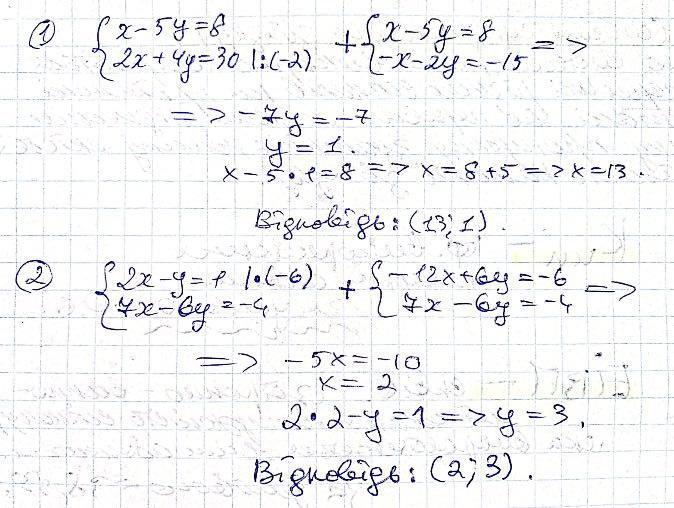 1 { x - 5y = 8 + { x - 5y = 8 =>
2x + 4y = 30 |:(-2) -x - 2y = -15
=> -7y = -7
y = 1.
x - 5 • 1 = 8 => x = 8 + 5 => x = 13.
Відповідь: (13; 1).
2 { 2x - y = 1 |•(-6) + { -12x + 6y = -6 =>
7x - 6y = -4 7x - 6y = -4
=> -5x = -10
x = 2
2 • 2 - y = 1 => y = 3.
Відповідь: (2; 3).